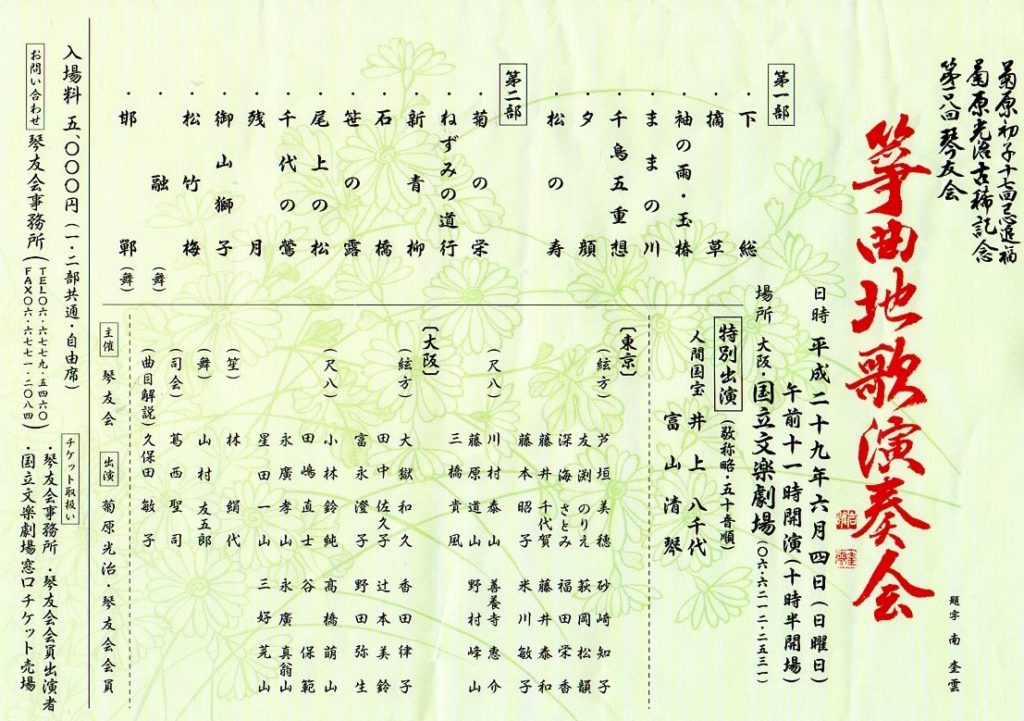 菊原初子十七回忌追福
菊原光治古稀記念
琴友会
箏曲地歌演奏会
題字 南 奎雲
日時 平成二十九年六月四日(日曜日)
午前十一時開演(十時半開場)
場所 大阪・国立文楽劇場(〇六・六二一二・二五三一)
第一部
・下総
・摘草
・袖の雨・玉椿
・ままの川
・千鳥五重想
・夕顔
・松の寿
第二部
・菊の栄
・ねずみの道行
・新青柳
・石橋
・笹の露
・尾上の松
・千代の鶯
・残月
・御山獅子
・松竹梅
・融(舞)
・邯鄲(舞)
特別出演(敬称略・五十音順)
人間国宝 井上八千代
富山清琴
〔東京〕
(絃方) 芦垣美穂 砂崎知子
友渕のりえ 萩岡松韻
深海さとみ 福田栄香
藤井千代賀 藤井泰和
藤本昭子 米川敏子
(尺八) 川村泰山 善養寺恵介
藤原道山 野村峰山
三橋貴風
〔大阪〕
(絃方) 大嶽和久 香田律子
田中佐久子 辻本美鈴
富永澄子 野田弥生
(尺八) 小林鈴純 高橋萌山
田嶋直士 谷保範
永廣孝山 永廣真翁山
星田一山 三好芫山
(笙) 林絹代
(舞) 山村友五郎
(司会) 葛西聖司
(曲目解説) 久保田敏子
主催 琴友会 出演 菊原光治・琴友会会員
入場料 五、〇〇〇円(一・二部共通・自由席)
お問い合わせ 琴友会事務所(TEL〇六・六七七九・五四六〇
FAX〇六・六七七一・二〇八四)
チケット取扱い
・琴友会事務所・琴友会会員出演者
・国立文楽劇場窓口チケット売場